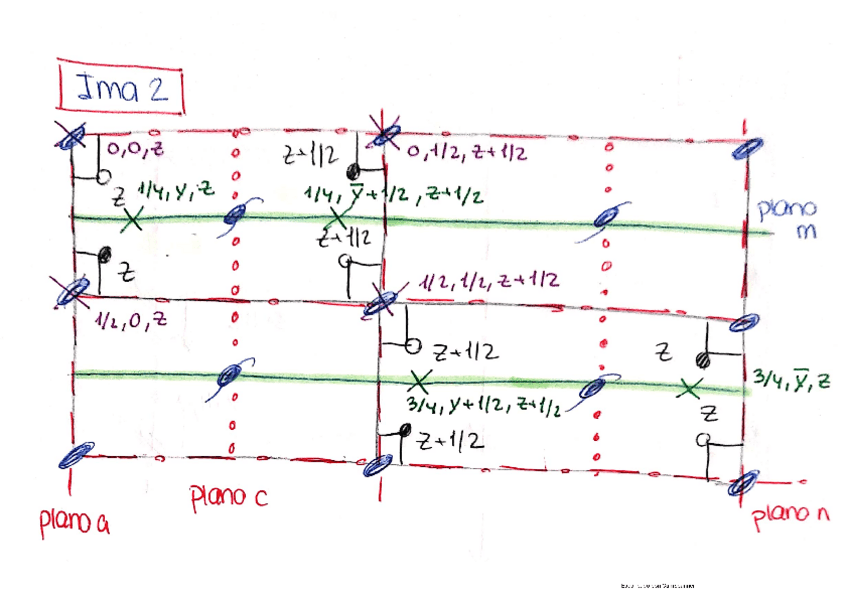 Ima 2
0,0,z
z+1/2
0,1/2,z+1/2
z
1/4,y,z
1/4,y̅+1/2,z+1/2
plano
m
z+1/2
z
1/2,1/2,z+1/2
1/2,0,z
z+1/2
z
3/4,y̅,z
3/4,y+1/2,z+1/2
z
z+1/2
plano a
plano c
plano n